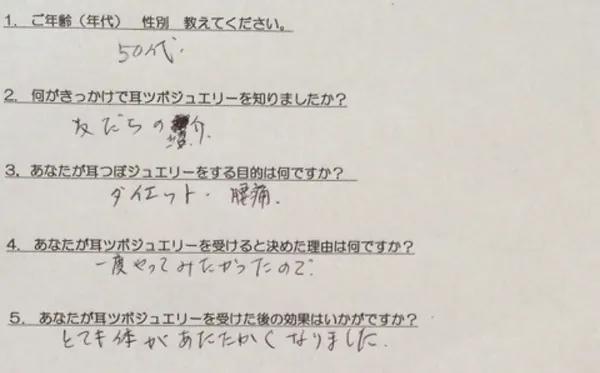 1. ご年齢（年代） 性別 教えてください。
50代.
2. 何がきっかけで耳ツボジュエリーを知りましたか？
友だちの紹介.
3. あなたが耳つぼジュエリーをする目的は何ですか？
ダイエット・腰痛.
4. あなたが耳ツボジュエリーを受けると決めた理由は何ですか？
一度やってみたかったので.
5. あなたが耳ツボジュエリーを受けた後の効果はいかがですか？
とても体があたたかくなりました.